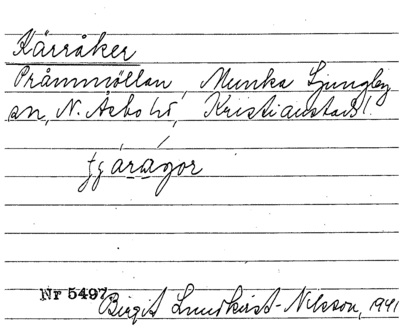 Kärråker
Pråmmöllan, Munka Ljungby
sn, N. Åsbo hd, Kristianstads l.
Nr 5497
Birgit Lundkvist-Nilsson, 1941